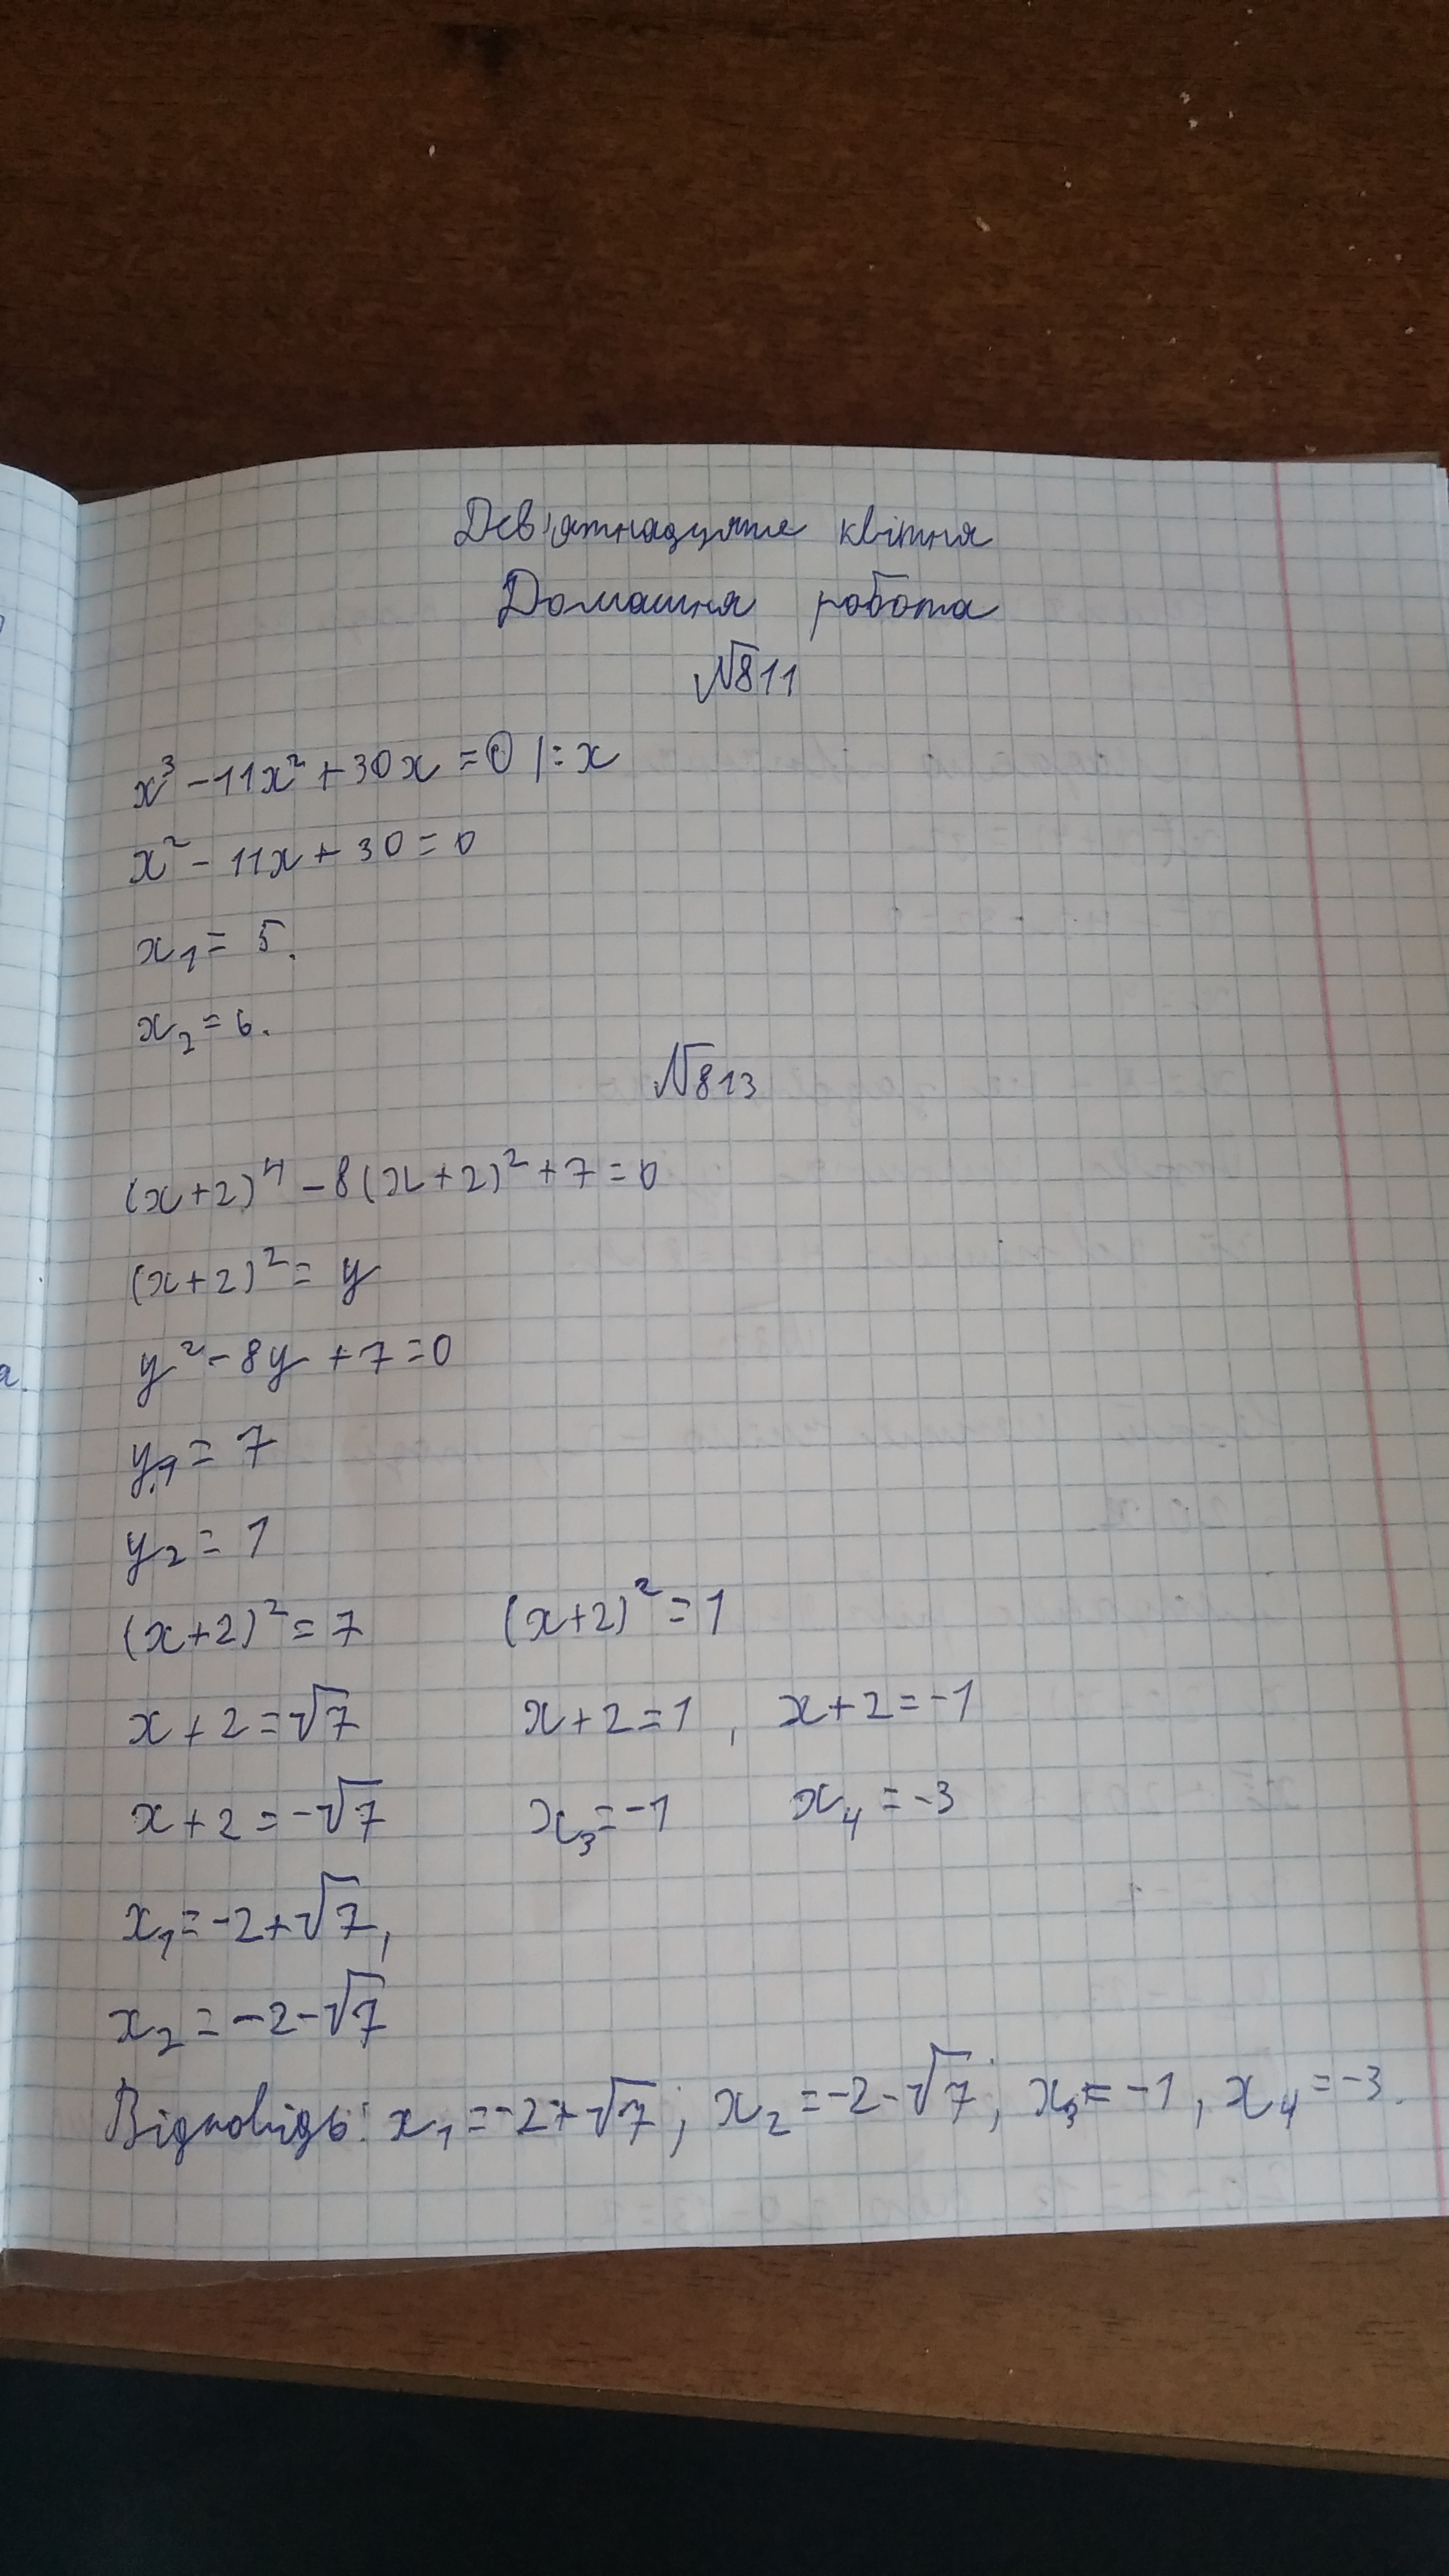 Дев'ятнадцяте квітня
Домашня робота
№811
x³ - 11x² + 30x = 0 |: x
x² - 11x + 30 = 0
x₁ = 5.
x₂ = 6.
№813
(x+2)⁴ - 8(x+2)² + 7 = 0
(x+2)² = y
y² - 8y + 7 = 0
y₁ = 7
y₂ = 1
(x+2)² = 7 (x+2)² = 1
x + 2 = √7 x + 2 = 1 , x + 2 = -1
x + 2 = -√7 x₃ = -1 x₄ = -3
x₁ = -2 + √7,
x₂ = -2 - √7
Відповідь: x₁ = -2 + √7; x₂ = -2 - √7; x₃ = -1, x₄ = -3.